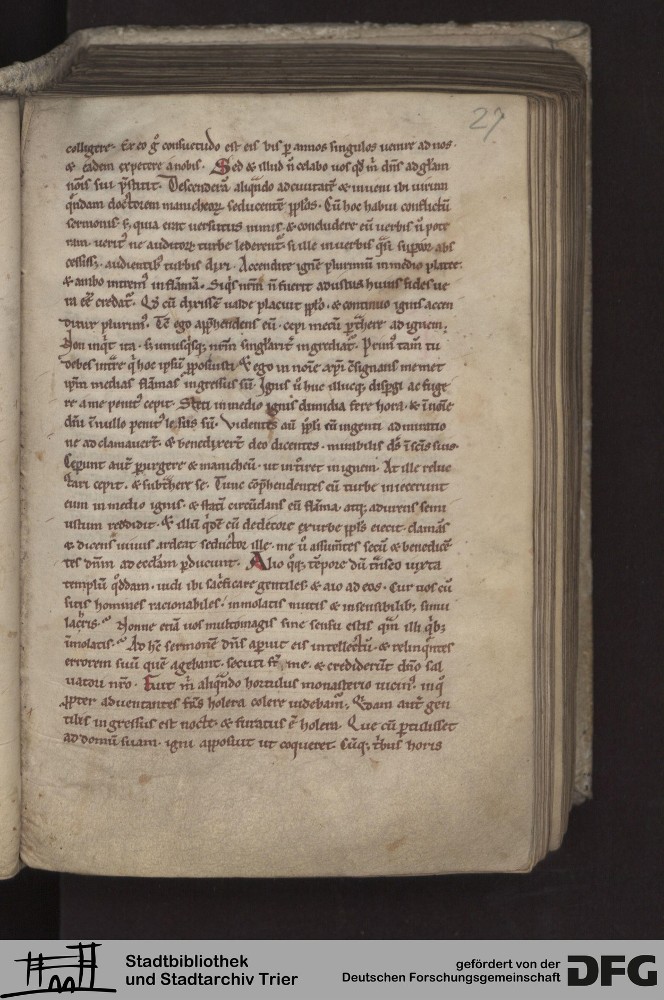 27
colligere. Ex eo g̊ consuetudo est eis bis ꝑ annos singulos uenire ad nos.
& eadem expetere a nobis. Sed & illud n̄ celabo uos qd̄ m̄ dn̄s ad gl̄am
nōis sui p̄stitit. Descenderā aliqn̄do ad ciuitatē & inueni ibi uirum
qn̄dam doctorem manicheoꝝ seducentē pplōs. Cū hoc habui conflictū
sermonis. s; quia erat uersutus nimis & concludere eū uerbis ñ pote
ram. uerit᷒ ne auditoꝝ turbe lederent᷑. si ille in uerbis qͣsi supior abs
cessiss;. audientib; turbis dixi. Accendite ignē plurimū in medio platee.
& ambo intrem᷒ in flāmā. Siqͥs nr̄m ñ fuerit adustus huius fides ue
ra eē credat᷑. Qd̄ cū dixissē ualde placuit pplō. & continuo ignis accen
ditur plurim᷒. Tē ego app̄hendens eū. cepi mecū ꝑtͣhere ad ignem.
Non inqͥt ita. s; unusqͥsq; nr̄m singl̄arit᷑ ingrediat᷑. Prim᷒ tam̄ tu
debes intͣre qͥ hoc ipsū ꝓposuisti. Et ego in noīe xp̄i cͦsignans memet
ipm̄ medias flāmas ingressus sū. Ignis ū huc illucq; disp̄gi ac fuge
re a me penit᷒ cepit. Steti in medio ignis dimidia fere hora. & ī noīe
dn̄i ī nullo penit᷒ lesus sū. Videntes aū ppli cū ingenti admiratio
ne adclamauer̄t. & benedixer̄t deo dicentes. mirabilis ds̄ ī scīs suis.
Ceperunt aut̄ ꝑurgere & manicheū. ut intͣret in ignem. At ille reluc
tari cepit. & subtͣhere se. Tunc cōp̄hendentes eū turbe iniecerunt
eum in medio ignis. & statī circūdans eū flāma. atq; adurens semi
ustum reddidit. Et illū qͥdē cū dedecore ex urbe ppl̄s eiecit. clamās
& dicens uiuus ardeat seductor ille. me ū assum̄tes secū & benedicē
tes dn̄m ad eccl̄am ꝑducunt. Alio qͦq; tēpore dū tͣnseo iuxta
templū qͦddam. uidi ibi sacͥficare gentiles & aio ad eos. Cur uos cū
sitis homines racionabiles. immolatis mutis & insensibilib; simu
lacͥs. Nonne etiā uos multo magis sine sensu estis qͣm illi qͥb;
ī̄molatis. Ad hc̄ sermonē dn̄s apuit eis intellectū. & relinqͥntes
errorem suū quē agebant. secuti sͭ me. & crediderūt dn̄o sal
uatori nr̄o. Fuit m̄ aliqn̄do hortulus monasterio uicin᷒. in qͦ
ꝓpter aduentantes fr̄s holera colere uidebam᷒. Qͥdam aut̄ gen
tiles ingressus est nocte. & furatus ē holera. Que cū ꝑtulisset
ad domū suam. igni apposuit ut coqueret. Cūq; tͥbus horis
Stadtbibliothek
und Stadtarchiv Trier
gefördert von der
Deutschen Forschungsgemeinschaft DFG